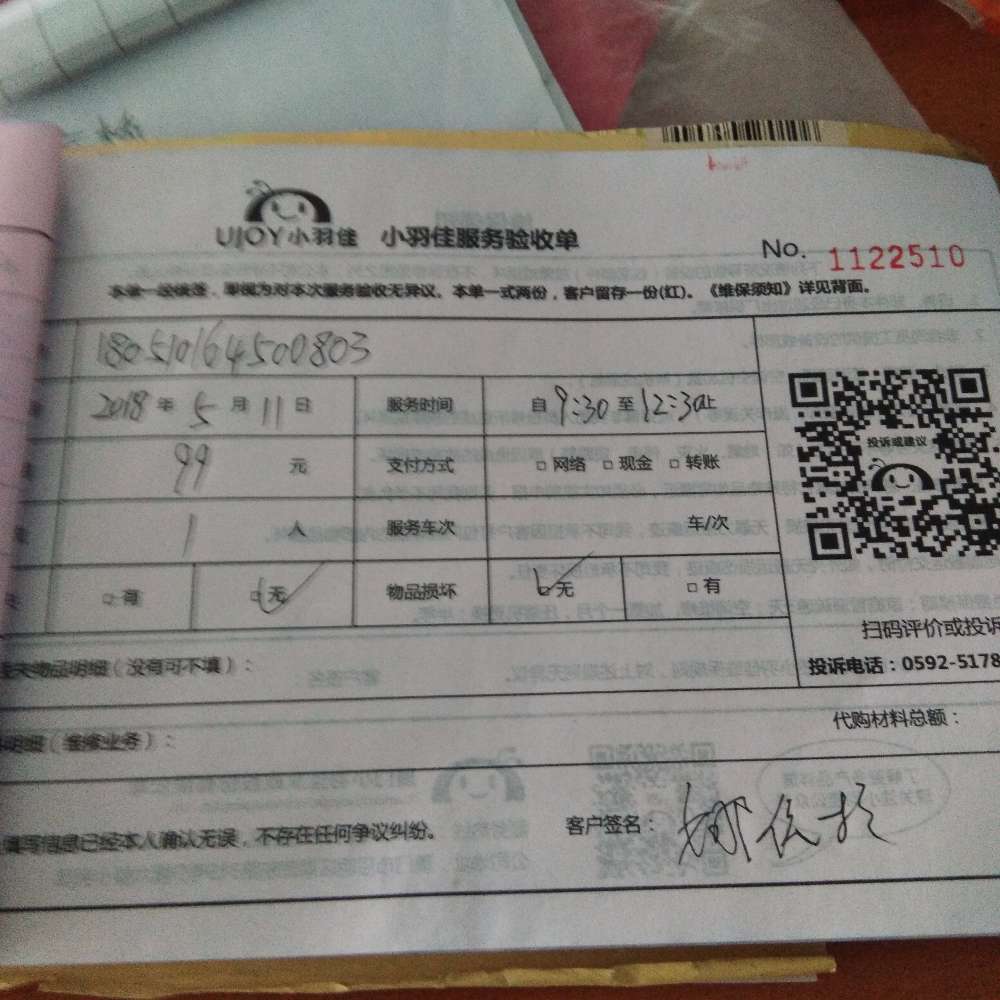 UJOY小羽佳 小羽佳服务验收单
No. 1122510
本单一经填签，即视为对本次服务验收无异议。本单一式两份，客户留存一份(红)。《维保须知》详见背面。
180510164500803
2018年5月11日 服务时间 自9:30至12:30止
99元 支付方式 □网络 □现金 □转账
1人 服务车次 车/次
□有 □无 物品损坏 □无 □有
投诉或建议
扫码评价或投诉
投诉电话：0592-5178
物品明细（没有可不填）：
代购材料总额：
明细（维修业务）：
填写信息已经本人确认无误，不存在任何争议纠纷。
客户签名：